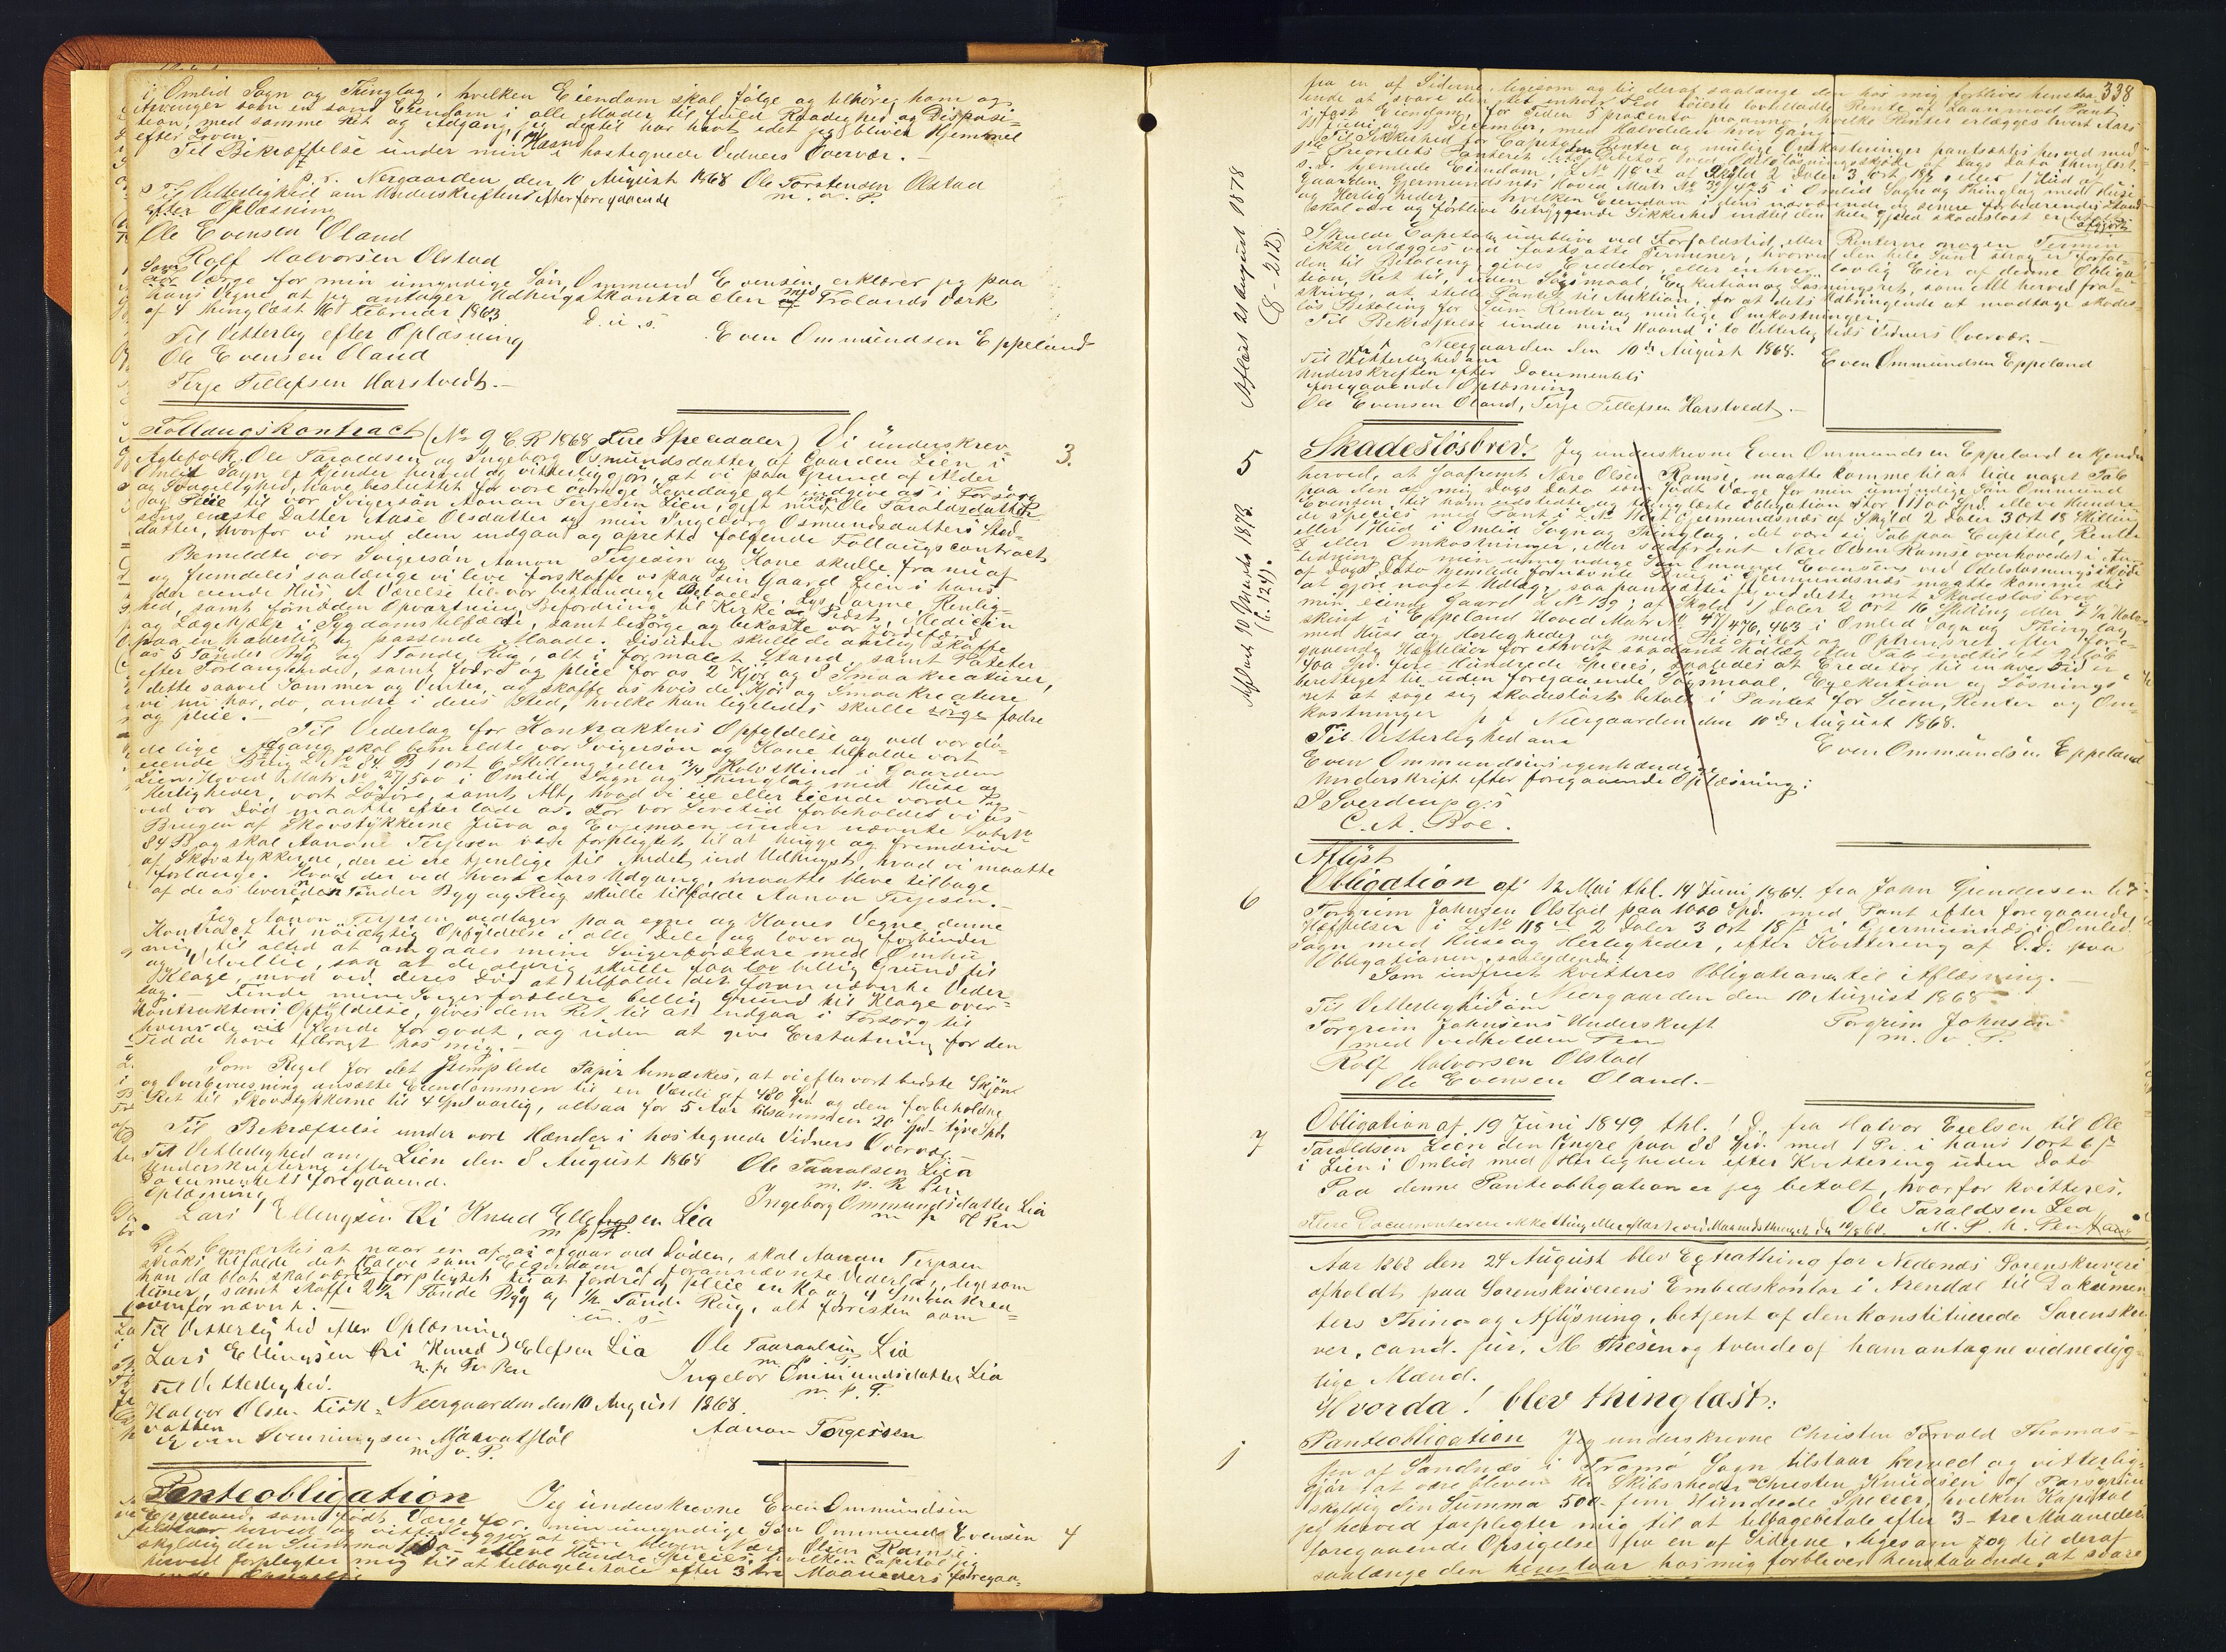 i Omlid Sogn og Thinglag, hvilken Eiendom skal følge og tilhøre ham og
Arvinger som en sand Eiendom i alle Maader til fuld Raadighed og Disposi-
tion, med samme Ret og Adgang, jeg dertil har havt, idet jeg bliver Hjemmel
efter Loven.
Til Bekræftelse under min Haand i hostegnede Vidners Overvær. —
p. t. Nergaarden den 10 August 1868 Ole Torstensen Olstad
m. v. P.
Til Vitterlighed om Underskriftens efter foregaaende
efter Oplæsning
Ole Evensen Oland
Rolf Halvorsen Olstad
Som Værge for min umyndige Søn, Ommund Evensen, erklærer jeg paa
hans Vegne at jeg antager Udhugstkontracten med Frolands Værk
af 4 thinglæst 16 Februar 1863
D. u. s.
Even Ommundsen Eppeland
Til Vitterlighed efter Oplæsning
Ole Evensen Oland
Terje Tellefsen Harstvedt. —
3.
Føllougskontract (No 9 C. R 1868 Fire Specidaler) Vi underskrev-
Ægtefolk, Ole Taraldsen og Ingeborg Osmundsdatter af Gaarden Lien i
Omlid Sogn erkjender herved og vitterliggjør, at vi paa Grund af Alder
og Svagelighed, have besluttet for vore øvrige Levedage at indgive os i Forsørg
og Pleie til vor Svigersøn Aanon Terjesen Lien, gift med min Ole Taraldsdatter
sens eneste Datter Aase Olsdatter og min Ingeborg Osmundsdatters Sted-
datter, hvorfor vi med dem indgaa og oprette følgende Føllougscontract
Bemeldte vor Svigersøn Aanon Terjesen og Kone skulle fra nu af
og fremdeles saalænge vi leve forskaffe os paa sin Gaard Lien i hans
der eiende Hus, et Værelse til vor bestandige Beboelse, Lys, Varme, Renlig-
hed, samt fornøden Opvartning, Befordring til Kirke og Præst, Medicin
og Lægehjælp i Sygdomstilfælde, samt besørge og bekoste vor Jordefærd
paa en hæderlig og passende Maade. Desuden skulle de aarlig skaffe
os 5 Tønder Byg og 1 Tønde Rug, alt i formalet Stand, samt Poteter
efter Forlangende, samt fodre og pleie for os 2 Kjør og 8 Smaakreaturer,
dette saavel Sommer og Vinter, og skaffe os hvis de Kjør og Smaakreature
vi nu har, dø, andre i deres Sted, hvilke han ligeledes skulle sørge fodre
og pleie. —
Til Vederlag for Kontraktens Opfyldelse og ved vor dø-
delige Afgang skal bemeldte vor Svigersøn og Kone tilfalde vort
eiende Brug L No 84 B 1 ort 6 Skilling eller 3/4 Kalvskind i Gaarden
Lien Hoved Matr No 27/500 i Omlid Sogn og Thinglag med Huse og
Herligheder, vort Løsøre, samt Alt, hvad vi eie eller eiende vorde og
ved vor Død maatte efterlade os. For vor Levetid forbeholdes vi os
Brugen af Skovstykkerne Juva og Evjemoen under nævnte Løbe No
84 B og skal Aanone Terjesen være forpligtet til at hugge og fremdrive
af Skovstykkerne, der ei ere tjenlige til Andet, ind Udhugst, hvad vi maatte
forlange. Hvad der ved hvert Aars Udgang maatte blive tilbage
af de os leverede Tønder Byg og Rug skulle tilfalde Aanon Terjesen. —
Jeg Aanon Terjesen vedtager paa egne og Kones Vegne denne
Kontract til nøiagtig Opfyldelse i alle Dele, og lover og forbinder
mig til altid at omgaaes mine Svigerforældre med Omhu
og Velvillie, saa at de aldrig skulle faa lov billig Grund til
Klage, mod ved deres Død at tilfalde det forannævnte Veder-
lag. — Finde mine Svigerforældre billig Grund til Klage over
Kontraktens Opfyldelse, gives dem Ret til at indgaa i Forsorg til
hvem de vil kunde for godt, og uden at give Erstatning for den
Tid de have tilbragt hos mig. —
Som Regel for det stemplede Papir bemærkes, at vi efter vort bedste Skjøn
og Overbeviisning ansætte Eiendommen til en Værdi af 480 Spd og den forbeholdne
Ret til Skovstykkerne til 4 Spd aarlig, altsaa for 5 Aar tilsammen 20 Spd tyve Spd.
Til Bekræftelse under vore Hænder i hostegnede Vidners Overvær.
Lien den 8 August 1868 Ole Taaralsen Lia
m. p. R Pen
Til Vitterlighed om
Underskrifterne efter
Documentets foregaaend.
Oplæsning
Ingeborg Ommundsdatter Lia
m p H Pen
Lars Ellingsen Ri Knud Ellefsen Lia
m p P.
Det bemærkes at naar en af os afgaar ved Døden, skal Aanon Terjesen
straks tilfalde det Halve som Eiendom af forannævnte Vederlag, ligesom
han da blot skal være forpligtet til at fordre og pleie en Ko og 4 Smaa Krea-
turer, samt skaffe 2 1/2 Tønde Byg og 1/2 Tønde Rug, alt forresten som
ovenfor nævnt. —
u. s
Til Vitterlighed efter Oplæsning
Lars Ellingsen Ri Knud Ellefsen Lia Ole Taaraalsen Lia
m. p. Fr Pen m. p. P.
Ingebor Ommundsdatter Lia
m. p. P.
Til Vitterlighed.
Halvor Olsen Fisk= Neergaarden den 10 August 1868.
vatten Aanon Torgersen
Even Svenningsen Maavatstøl
m. v. P.
4
Panteobligation Jeg underskrevne Even Ommundsen
Eppeland, som født Værge for min umyndige Søn Ommund Evensen
tilstaar herved og vitterliggjør at være bleven Nære Olsen Ramse
skyldig den Summa 1100 - elleve Hundre Species, hvilken Capital jeg
herved forpligter mig til at tilbagebetale efter 3 tre Maaneders foregaa-
338
fra en af Siderne, ligesom og til deraf saalange den hos mig forbliver henstaa-
ende at svare den til enhver Tid høieste lovtilladte Rente af Laan mod Pant
i fast Eiendom, for Tiden 5 procento proanno, hvilke Renter erlægges hvert Aars
11 Juni og 11 December, med Halvdelen hver Gang —
Til Sikkerhed for Capital, Renter og mulige Omkostninger pantsættes herved med
1ste Prioritets Panteret den Debitor ved Odelsløsningsskjøte af Dags Dato thinglæst
s. D. hjemlede Eiendom, L No 118 a af Skyld 2 Daler 3 Ort 18 ß, eller 1 Hud i
Gaarden Gjermundsnes Hoved Matr No 39/425 i Omlid Sogn og Thinglag med Huse
og Herligheder, i hvilken Eiendom i dens nærværende og senere forbedrende Stand
skal være og forblive betryggende Sikkerhed indtil den hele Gjæld skadesløst er betalt
afgjort.
Skulde Capitalen udeblive ved Forfaldstid, eller Renterne nogen Termin
ikke erlægges ved fastsatte Terminer, hvorved den hele Sum strax er forfal-
den til Betaling gives Creditor, eller enhver lovlig Eier af denne Obliga-
tion, Ret til, uden Søgsmaal, Exekution og Løsningsret, som Alt herved fra-
skrives, at stille Pantet til Auktion, for at dets Udbringende at modtage skades-
løs Betaling for Sum, Renter og mulige Omkostninger.
Til Bekræftelse under min Haand i to Vitterligheds Vidners Overvær. —
p t Neergaarden den 10de August 1868.
Til Vitterlighed om
Even Ommundsen Eppeland
Underskriften efter Documentets
foregaaende Oplæsning
Ole Evensen Oland, Terje Tellefsen Harstvedt. —
Aflæst 21 August 1878
(8 - 212).
5
Aflæst 10 Marts 1873.
(h. 124).
Skadesløsbrev. Jeg underskrevne Even Ommundsen Eppeland erkjender
herved, at saafremt Nære Olsen Ramse, maatte komme til at lide noget Tab
paa den af mig Dags Dato som født Værge for min umyndige Søn Ommund
Evensen til ham udstedte og thinglæste Obligation stor 1100 Spd. elleve Hundre-
de Species med Pant i L No 118 a Gjermundsnes af Skyld 2 Daler 3 Ort 18 Skilling
eller 1 Hud i Omlid Sogn og Thinglag, det være sig Tab paa Capital, Renter
& eller Omkostninger, eller saafremt Nære Olsen Ramse overhovedet i An-
ledning af min umyndige Søn Omund Evensens ved Odelsløsningsskjøde
af Dags Dato hjemlede fornævnte Brug i Gjermundsnes maatte komme til
at gjøre noget Udlæg, saa pantsætter jeg ved dette mit Skadesløsbrev
min eiende Gaard L No 139; af Skyld 1 Daler 2 Ort 16 Skilling eller 3 1/2 Kalve-
skind i Eppeland Hoved Matr No 47/476, 463 i Omlid Sogn og Thinglag
med Huse og Herligheder og med Prioritet og Optrinsret efter fore-
gaaende Hæftelser for ethvert saadant Udlæg eller Tab indtil et Beløb
400 Spd. fire Hundrede Species, saaledes at Creditor til enhver Tid er
berettiget til uden foregaaende Søgsmaal, Exekution og Løsnings-
ret at søge sig skadesløst betalt i Pantet for Sum, Renter og Om-
kostninger p t Neergaarden den 10de August 1868.
Til Vitterlighed om
Even Ommundsen Eppeland
Even Ommundsens egenhændige
Underskrift efter foregaaende Oplæsning:
J Sverdrup gs
C. A. Boe.
6
Aflyst
Obligation af 12 Mai thl. 14 Juni 1864 fra John Gundersen til
Torgrim Johnsen Olstad paa 1000 Spd. med Pant efter foregaaende
Hæftelser i L No 118 a 2 Daler 3 Ort 18 ß i Gjermundnes i Omlid
Sogn med Huse og Herligheder, efter Kvittering af S. D. paa
Obligationen, saalydende:
Som indfriet kvitteres Obligationen til Aflæsning. —
p. t Neergaarden den 10 August 1868
Til Vitterlighed om
Torgrim Johnsens Underskrift Torgrim Johnsen
med vedholden Pen m. v. P.
Rolf Halvorsen Olstad
Ole Evensen Oland. —
7
Obligation af 19 Juni 1849 thl. ! D. fra Halvor Eielsen til Ole
Taraldsen Lien den Yngre paa 88 Spd. med 1 Pr. i hans 1 ort 6 ß
i Lien i Omlid med Herligheder efter Kvittering uden Dato
Paa denne Panteobligation er jeg betalt, hvorfor kvitteres.
Ole Taraldsen Lea
Flere Documenter ere ikke thinglæst eller aflæste ved Maanedsthinget den 10/8 68. M. P. h. Pen
Aar 1868 den 24 August blev Extrathing for Nedenæs Sorenskriveri
afholdt paa Sorenskriverens Embedskontor i Arendal til Dokumen-
ters Thing- og Aflysning, betjent af den konstituerede Sorenskri-
ver, cand. jur. M Thesen og tvende af ham antagne vidnedyg-
tige Mænd.
Hvorda! blev thinglæst:
1
Panteobligation Jeg underskrevne Christen Torvald Thomas-
sen af Sandnæs i Tromø Sogn tilstaar herved og vitterlig-
gjør at være bleven Hr Skibsrheder Christen Knudsen af Porsgrun
skyldig den Summa 500 - fem Hundrede Specier, hvilken Kapital
jeg herved forpligter mig til at tilbagebetale efter 3 - tre Maaneders
foregaaende Opsigelse fra en af Siderne, ligesom og til deraf
saalænge den henstaar hos mig forbliver henstaaende at svare